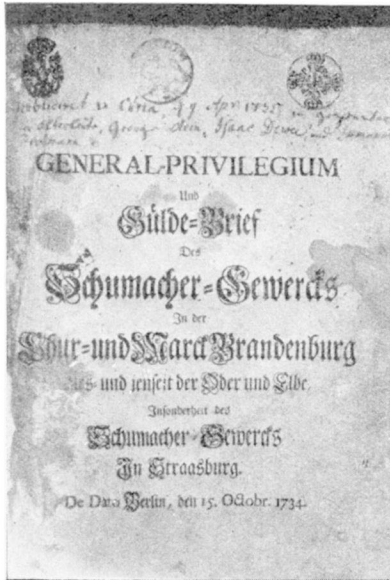 GENERAL-PRIVILEGIUM
Und
Gülde=Brief
Des
Schumacher=Gewercks
In der
Chur=und Marck Brandenburg
dies- und jenseit der Oder und Elbe,
Insonderheit des
Schumacher=Gewercks
In Straasburg.
De Dato Berlin, den 15. Octobr. 1734.